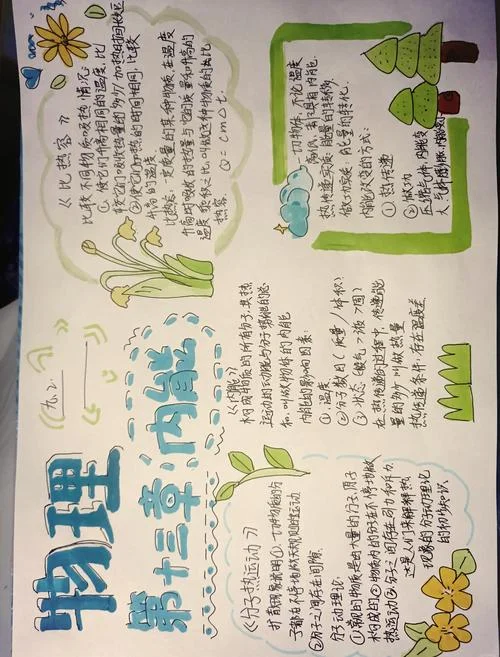 物理
第十三章:内能
九.2
《分子热运动》
扩散现象表明①一切物质的分
子都在不停地做无规则的运动
②分子之间存在间隙.
分子动理论:
①常见的物质是由大量的分子,原子
构成的②物质内的分子在不停地做
热运动③分子之间存在引力和斥力.
这是人们用来解释热
现象的分子动理论
的初步知识
《内能》
构成物质的所有分子,其热
运动的动能与分子势能的总
和,叫做物体的内能
内能的影响因素:
①.温度
②分子数目(质量/体积)
③状态
在热传递的过程中,传递能
量的多少叫做热量
热传递条件:存在温度差
《比热容》
比较不同物质吸热情况:
①.使它们升高相同的温度,比
较它们吸收热量的多少/加热时间长短
②使它们加热的时间相同,比较
升高的温度
比热容:一定质量的某种物质,在温度
升高时吸收的热量与它的质量和升高的
温度乘积之比,叫做这种物质的
比热容
Q=cmΔt.
一切物体,不论温度
高低,都具有内能.
热传递实质:能量的转移
做功实质:能量的转化.
内能改变的方式:
①热传递
②做功